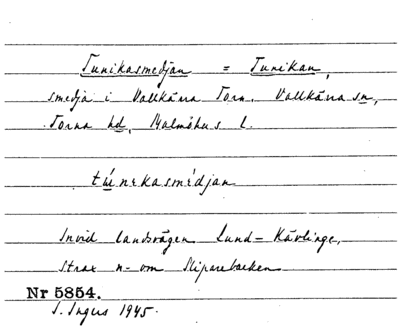 Tunikasmedjan = Tunikan,
smedja i Vallkärra Torn. Vallkärra sn,
Torna hd, Malmöhus l.
túnekasmèdjan
Invid landsvägen Lund–Kävlinge,
strax n- om Sliparebacken
Nr 5854.
S. Ingers 1945.